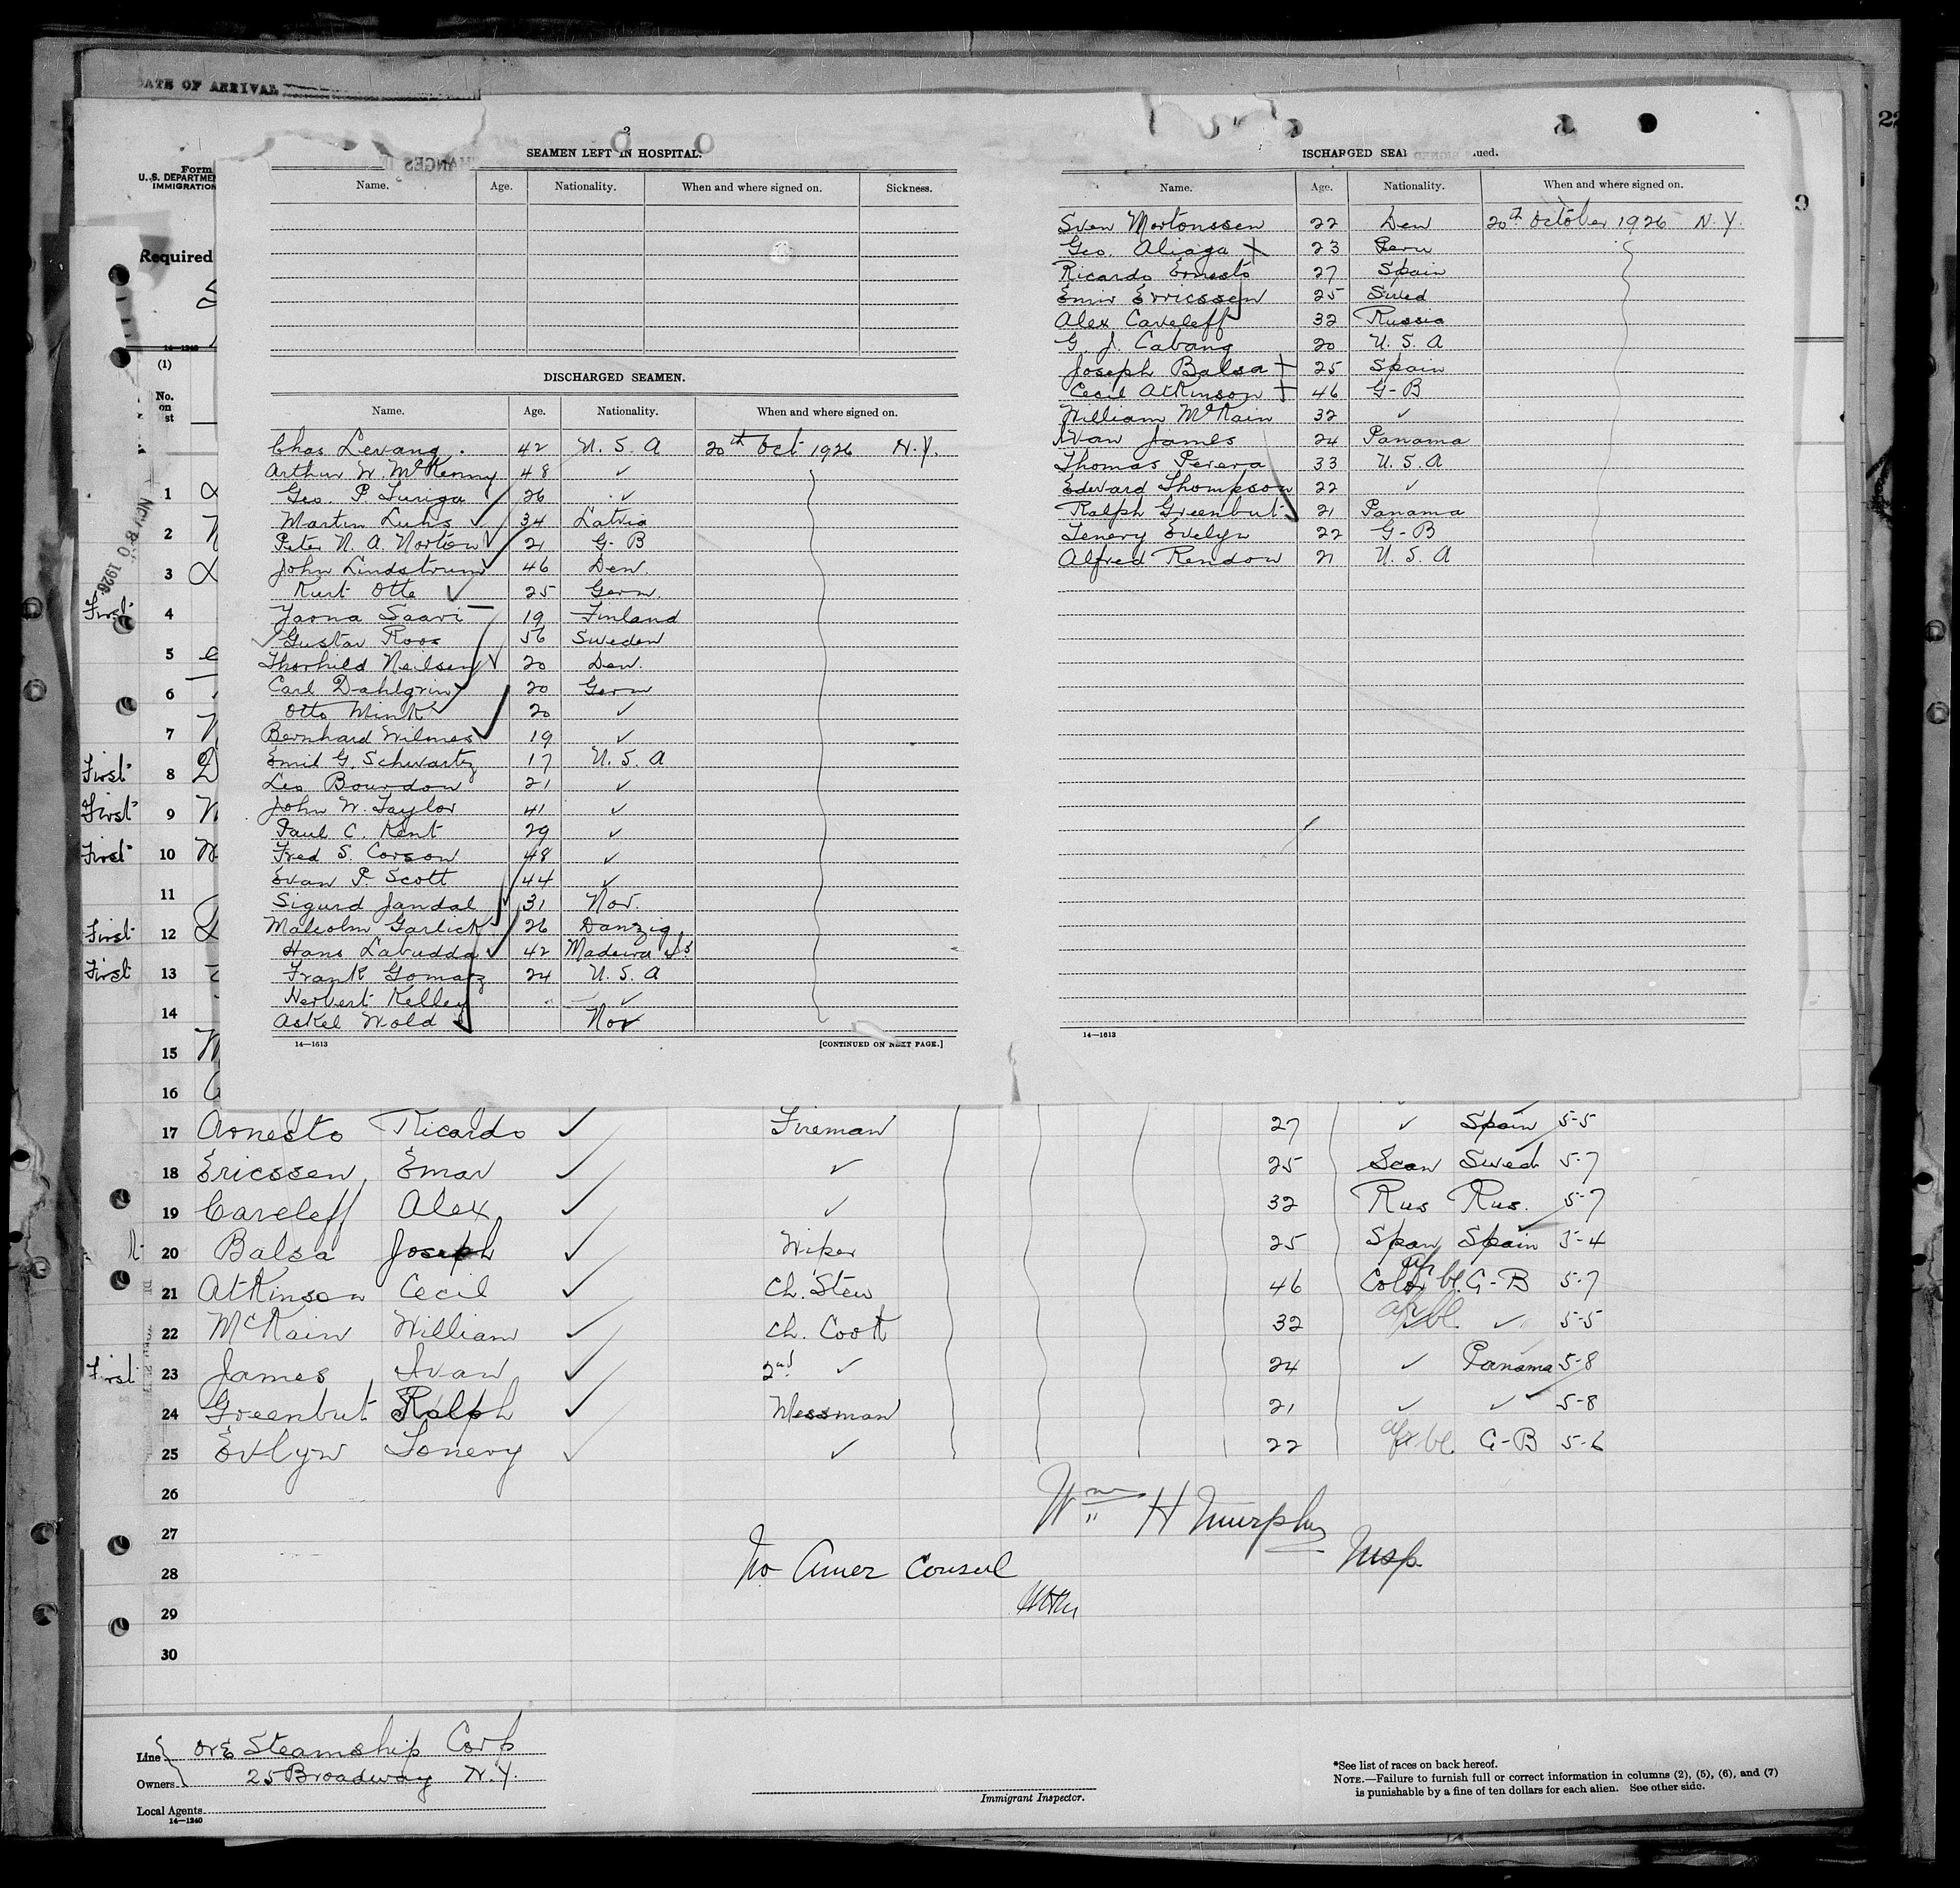 DATE OF ARRIVAL
Form
U. S. DEPARTME
IMMIGRATION
Required
14-1240
(1)
No.
on
st
2
SEAMEN LEFT IN HOSPITAL.
Name. Age. Nationality. When and where signed on. Sickness.
DISCHARGED SEAMEN.
Name. Age. Nationality. When and where signed on.
Chas Levang. 42 U. S. A 20th Oct 1926 N.Y.
Arthur W. McKenny 48 ✓
Geo. P. Turiga 26 ✓
Martin Luhs ✓ 34 Latvia
Peter N. A. Norton ✓ 21 G-B
John Lindstrum ✓ 46 Den.
Kurt Otte ✓ 25 Germ.
Jaona Saari 19 Finland
✓ Gustav Roos 56 Sweden
Thorhild Neilsen ✓ 20 Den.
Carl Dahlgrin ✓ 20 Germ
Otto Mink ✓ 20 ✓
Bernhard Wilmes ✓ 19 ✓
Emil G. Schwartz 17 U. S. A
Leo Bourdon 21 ✓
John W. Taylor 41 ✓
Paul C. Kent 29 ✓
Fred S. Corson 48 ✓
Evan P. Scott 44 ✓
Sigurd Jandal 31 Nor.
Malcolm Garlick 26 Danzig
Hans Labudda ✓ 42 Madeira Is
Frank Gomaz 24 U. S. A
Herbert Kelley ✓
Askel Wold Nor
14—1613 [CONTINUED ON NEXT PAGE.]
ISCHARGED SEA ued.
Name. Age. Nationality. When and where signed on.
Sven Mortonssen 22 Den 20th October 1926 N.Y.
Geo. Aliaga X 23 Peru
Ricardo Ernesto 27 Spain
Emir Erricssen 25 Swed
Alex Caveleff 32 Russia
G. J. Cabang 20 U. S. A
Joseph Balsa + 25 Spain
Cecil Atkinson + 46 G-B
William McKain 32 ✓
Ivan James 24 Panama
Thomas Perera 33 U. S. A
Edward Thompson 22 ✓
Ralph Greenbut 21 Panama
Tenery Evelyn 22 G-B
Alfred Rendow 21 U. S. A
14—1613
1
2
3
First 4
5
6
7
First 8
First 9
First 10
11
First 12
First 13
14
15
16
17 Arnesto Ricardo ✓ Fireman 27 ✓ Spain 5-5
18 Ericssen, Emar ✓ ✓ 25 Scan Swed 5-7
19 Careleff Alex ✓ ✓ 32 Rus Rus. 5-7
20 Balsa Joseph ✓ Wiper 25 Span Spain 5-4
21 Atkinson Cecil ✓ Ch. Stew 46 Colo Af bl. G-B 5-7
22 McKain William ✓ Ch. Cook 32 af bl. ✓ 5-5
First 23 James Ivan ✓ 2nd ✓ 24 ✓ Panama 5-8
24 Greenbut Ralph ✓ Messman 21 ✓ ✓ 5-8
25 Evlyn Tonery ✓ ✓ 22 af bl G-B 5-6
26
27 Wm H Murphy
28 No Amer Consul Insp.
29 WHM
30
Line Ore Steamship Corp
Owners 25 Broadway N.Y.
Local Agents
14—1240
Immigrant Inspector.
*See list of races on back hereof.
NOTE.—Failure to furnish full or correct information in columns (2), (5), (6), and (7)
is punishable by a fine of ten dollars for each alien. See other side.